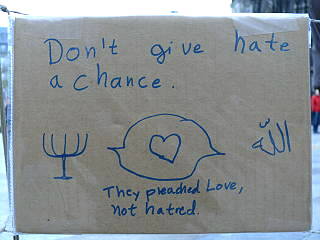 Don't give hate
a chance.
الله
They preached Love,
not hatred.